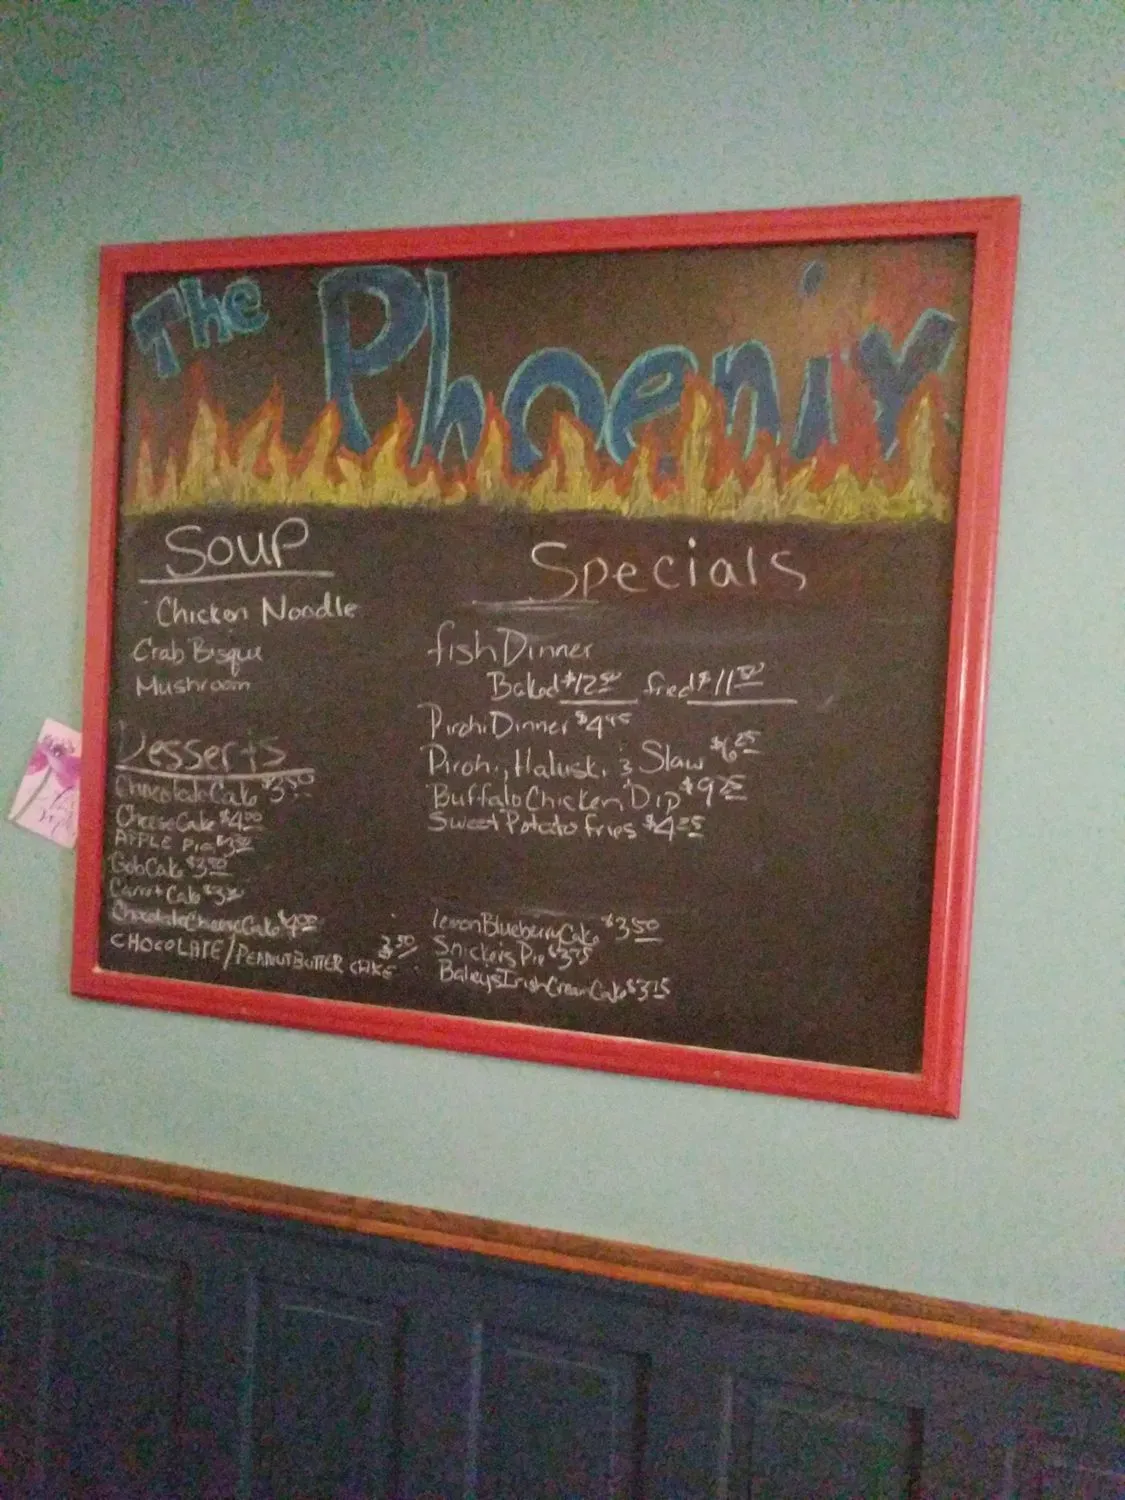 The Phoenix
Soup
Chicken Noodle
Crab Bisque
Mushroom
Desserts
Chocolate Cake $3.50
Cheese Cake $4.00
APPLE Pie
Gob Cake $3.50
Carrot Cake
Chocolate Cheese Cake $4.00
CHOCOLATE/PEANUTBUTTER CAKE 3.50
Specials
fish Dinner
Baked $12.50 fried $11.50
Pirohi Dinner $4.95
Pirohi, Haluski & Slaw $6.25
Buffalo Chicken Dip
Sweet Potato fries $4.25
lemon Blueberry Cake $3.50
Snickers Pie $3.75
Baileys Irish Cream Cake $3.75